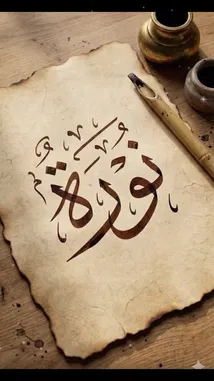 نورة